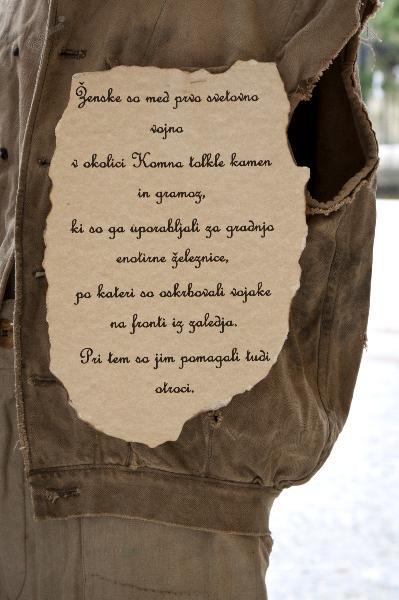 Ženske so med prvo svetovno
vojno
v okolici Komna tolkle kamen
in gramoz,
ki so ga uporabljali za gradnjo
enotirne železnice,
po kateri so oskrbovali vojake
na fronti iz zaledja.
Pri tem so jim pomagali tudi
otroci.